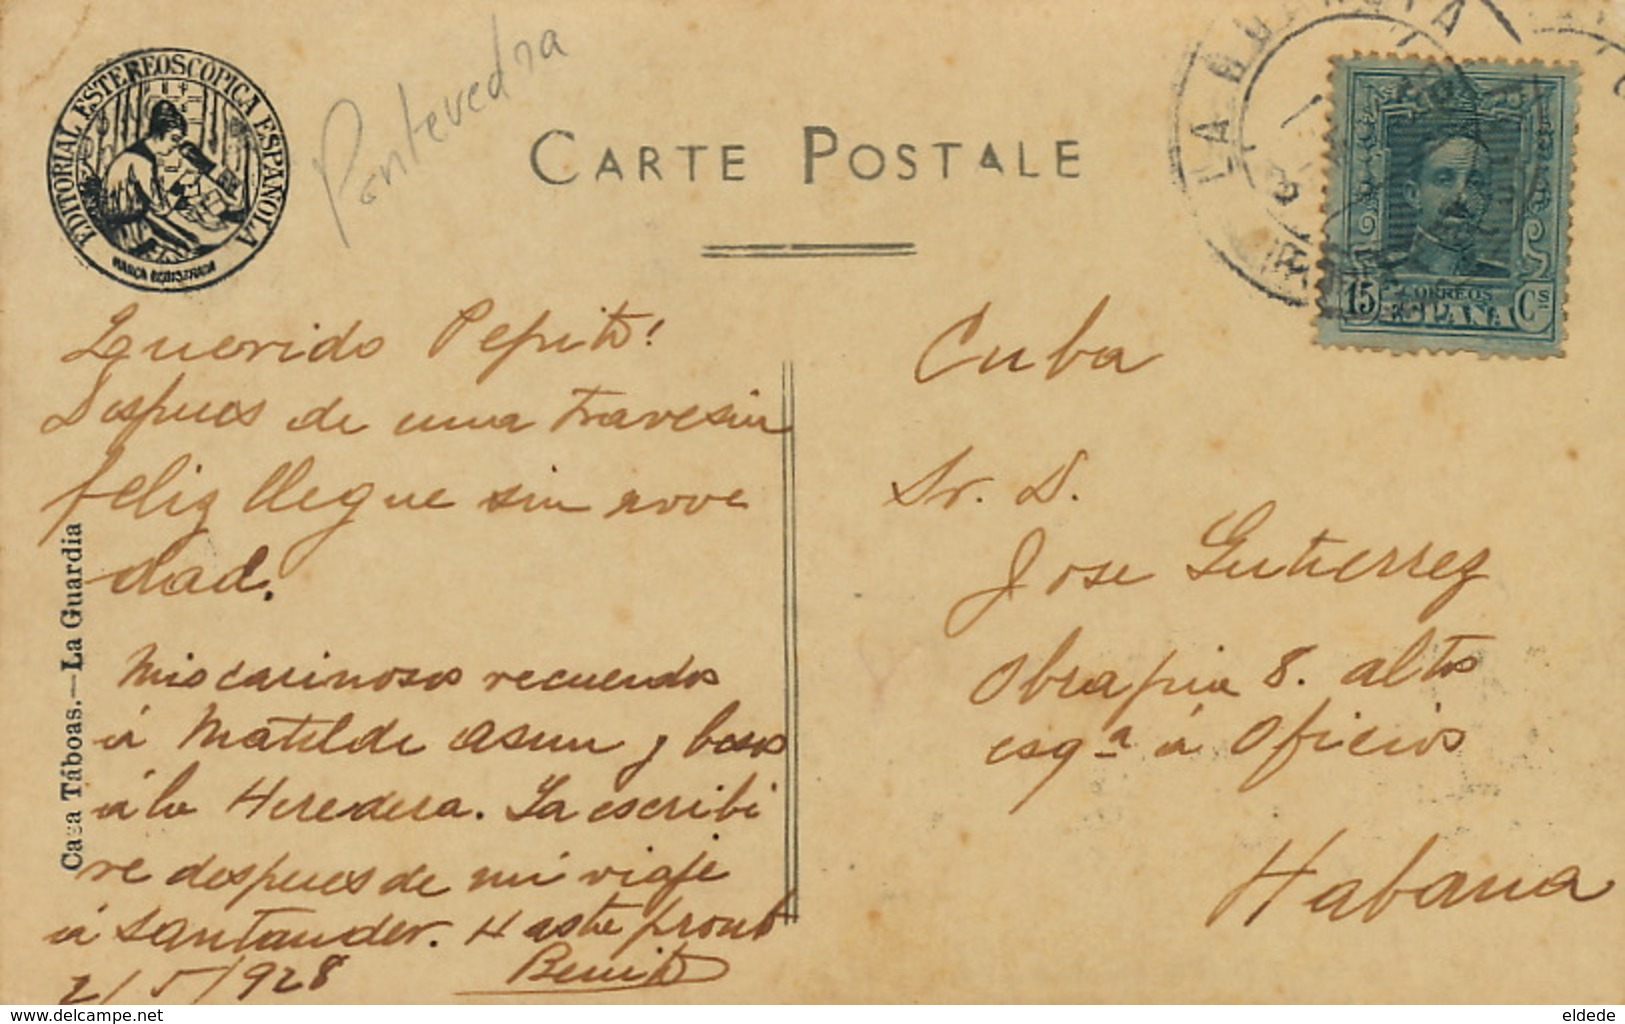 EDITORIAL ESTEREOSCOPICA ESPAÑOLA
MARCA REGISTRADA
Pontevedra
CARTE POSTALE
LA GUARDIA
15 CORREOS Cs
ESPAÑA
Querido Pepito!
Despues de una travesia
feliz llegue sin nove
dad.
Mis carinosos recuerdos
á Matilde Asun y besos
á la Heredera. Ya escribi
re despues de mi viaje
á Santander. Hasta pronto
2/5/928 Benito
Casa Táboas.—La Guardia
Cuba
Sr. D.
Jose Gutierrez
Obrapia 8. altos
esqª á Oficios
Habana
delcampe.net
eldede